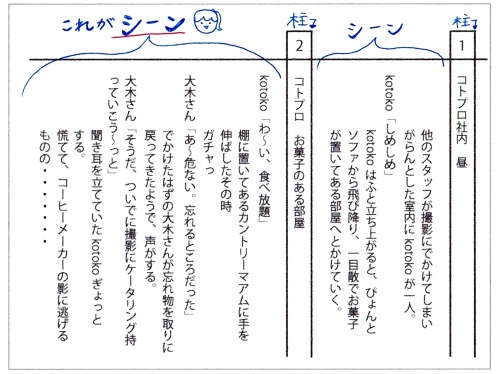 柱
1
コトプロ社内　昼
シーン
他のスタッフが撮影にでかけてしまい
がらんとした室内に kotoko が一人。
kotoko「しめしめ」
kotoko はふと立ち上がると、ぴょんと
ソファから飛び降り、一目散でお菓子
が置いてある部屋へとかけていく。
柱
2
コトプロ　お菓子のある部屋
これが シーン
kotoko「わ〜い、食べ放題」
棚に置いてあるカントリーマアムに手を
伸ばしたその時
ガチャっ
大木さん「あ〜危ない。忘れるところだった」
でかけたはずの大木さんが忘れ物を取りに
戻ってきたようで、声がする。
大木さん「そうだ、ついでに撮影にケータリング持
っていこう〜っと」
聞き耳を立てていた kotoko ぎょっと
する。
慌てて、コーヒーメーカーの影に逃げる
ものの・・・・・・・